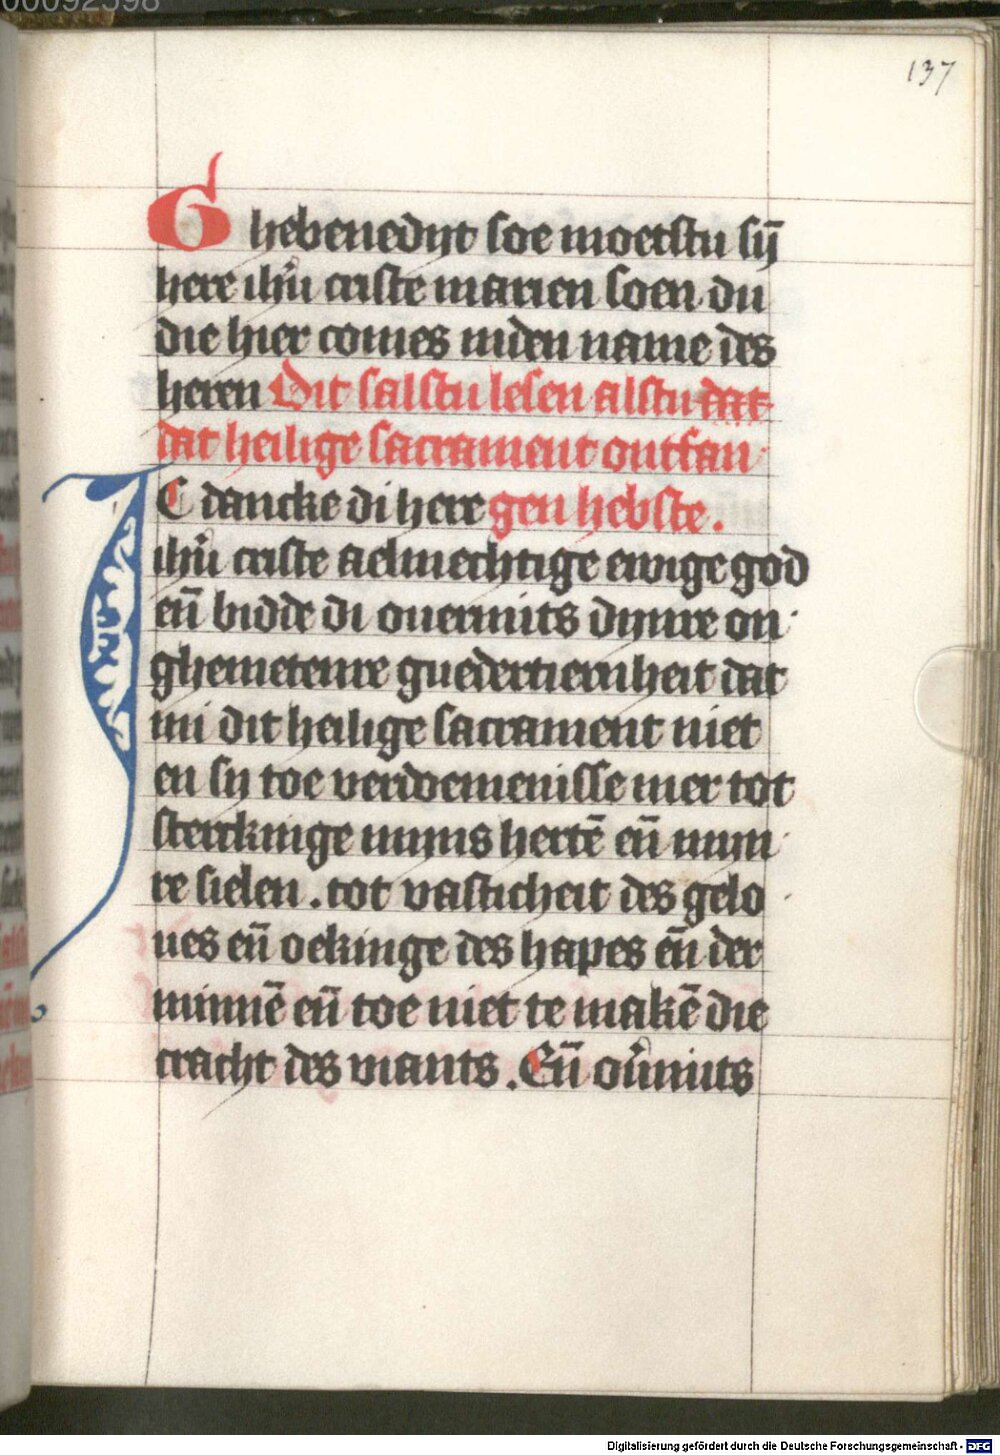 00092598
137
Ghebenedijt soe moetstu sij̄
here ihū criste marien soen du
die hier comes inden name des
heren Dit salstu lesen alstu dat
dat heilige sacrament ontfan
IC dancke di here gen hebste.
ihū criste aelmechtige ewige god
eñ bidde di ouermits dijnre on
ghemetenre guedertiernheit dat
mi dit heilige sacrament niet
en sij toe verdoemenisse mer tot
sterckinge mijns hertē eñ mijn
re sielen . tot vasticheit des gelo
ues eñ oekinge des hapes eñ der
minnē eñ toe niet te makē die
cracht des viants . Eñ ou͛mits
Digitalisierung gefördert durch die Deutsche Forschungsgemeinschaft - DFG